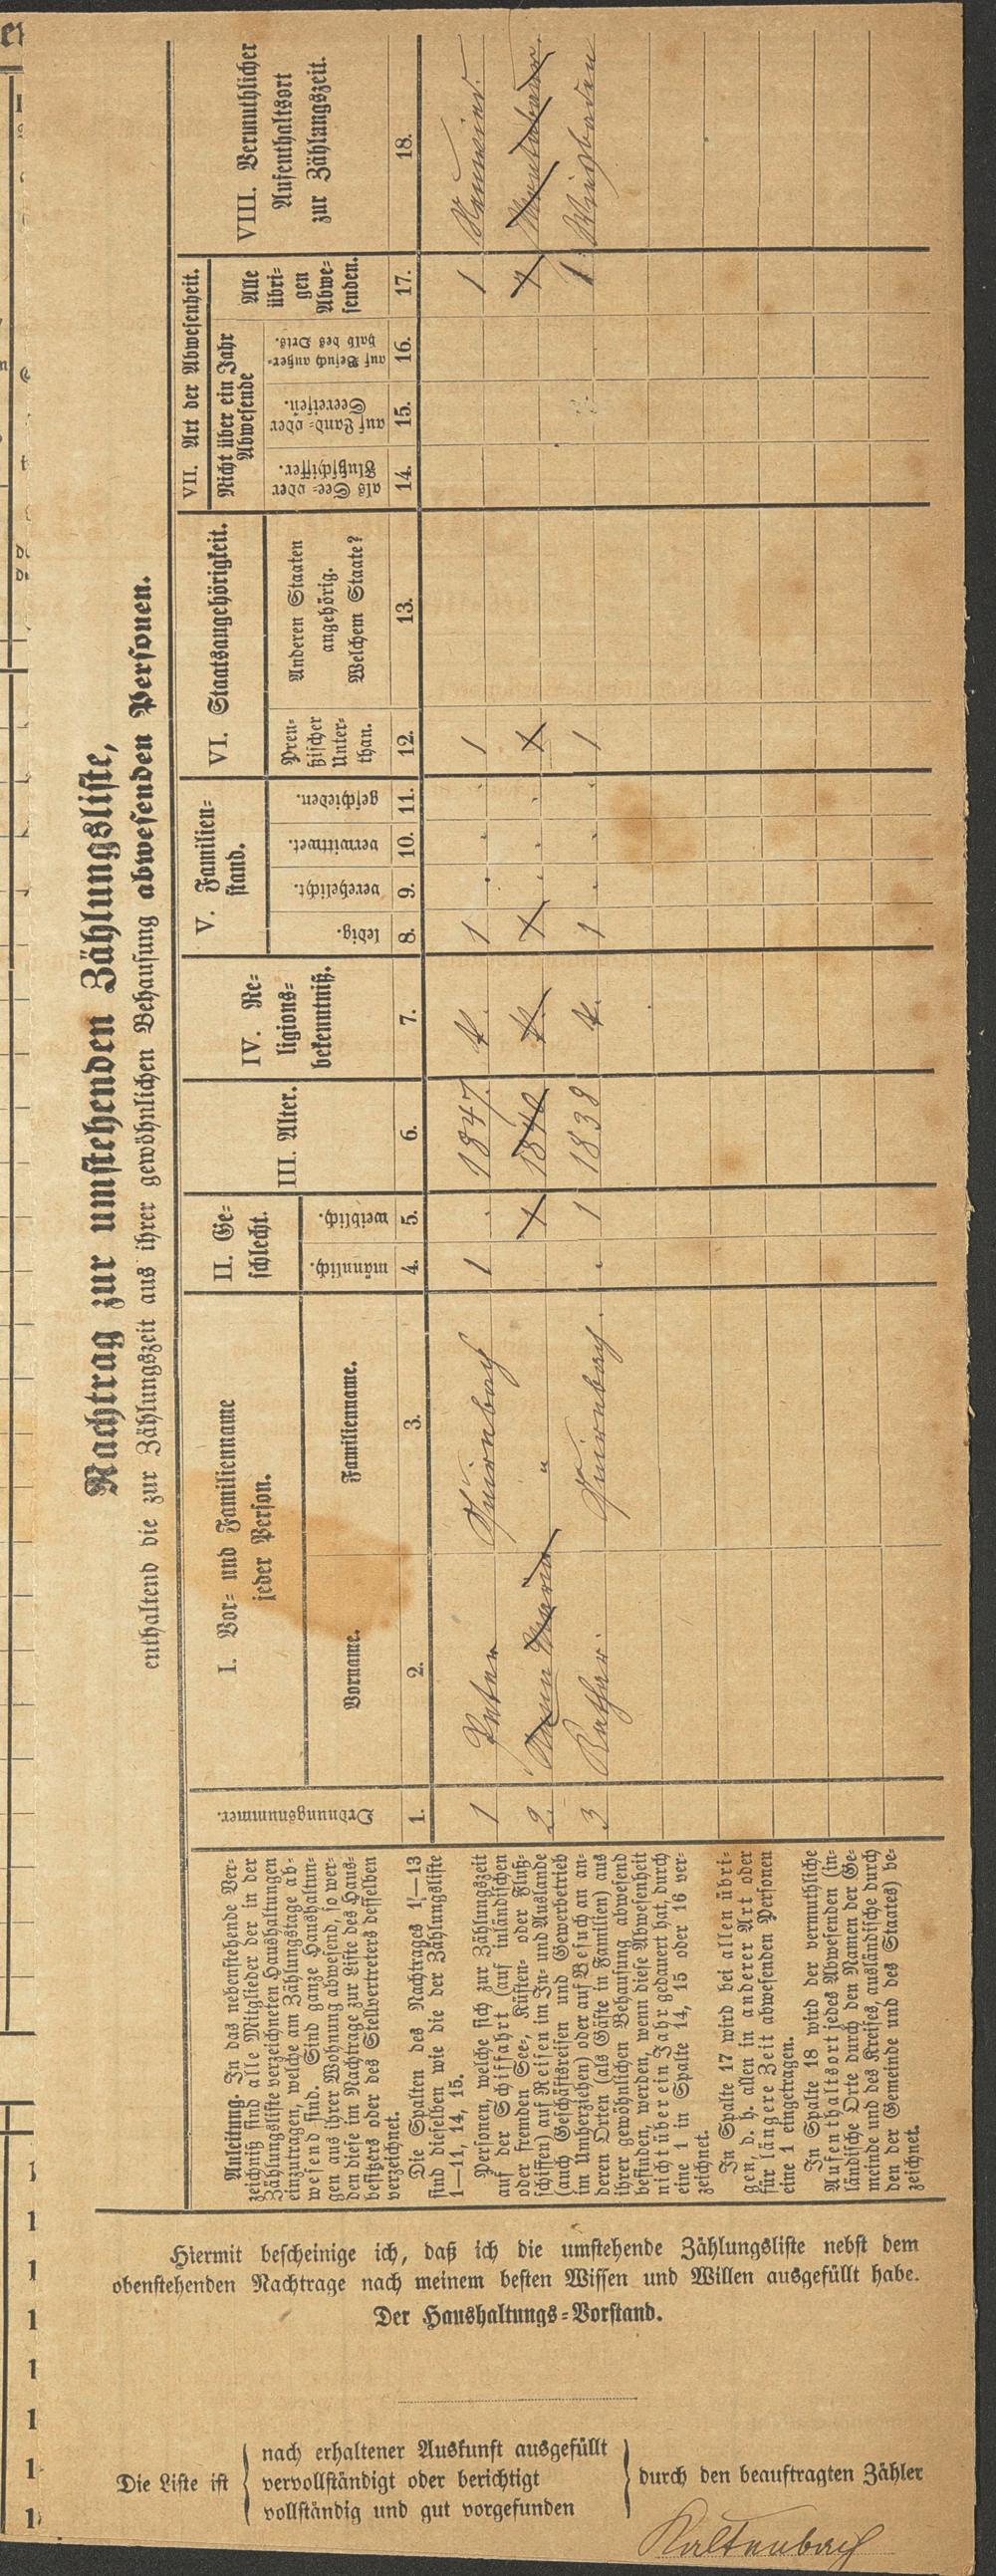 Nachtrag zur umstehenden Zählungsliste,
enthaltend die zur Zählungszeit aus ihrer gewöhnlichen Behausung abwesenden Personen.
Anleitung. In das nebenstehende Ver-
zeichniß sind alle Mitglieder der in der
Zählungsliste verzeichneten Haushaltungen
einzutragen, welche am Zählungstage ab-
wesend sind. Sind ganze Haushaltun-
gen aus ihrer Wohnung abwesend, so wer-
den diese im Nachtrage zur Liste des Haus-
besitzers oder des Stellvertreters desselben
verzeichnet.
Die Spalten des Nachtrages 1—13
sind dieselben wie die der Zählungsliste
1—11, 14, 15.
Personen, welche sich zur Zählungszeit
auf der Schiffahrt (auf inländischen
oder fremden See-, Küsten- oder Fluß-
schiffen) auf Reisen im In- und Auslande
(auch Geschäftsreisen und Gewerbetrieb
im Umherziehen) oder auf Besuch an an-
deren Orten (als Gäste in Familien) aus
ihrer gewöhnlichen Behausung abwesend
befinden, werden, wenn diese Abwesenheit
nicht über ein Jahr gedauert hat, durch
eine 1 in Spalte 14, 15 oder 16 ver-
zeichnet.
In Spalte 17 wird bei allen übri-
gen, d. h. allen in anderer Art oder
für längere Zeit abwesenden Personen
eine 1 eingetragen.
In Spalte 18 wird der vermuthliche
Aufenthaltsort jedes Abwesenden (in-
ländische Orte durch den Namen der Ge-
meinde und des Kreises, ausländische durch
den der Gemeinde und des Staates) be-
zeichnet.
Ordnungsnummer.
I. Vor- und Familienname
jeder Person.
Vorname.
Familienname.
II. Ge-
schlecht.
männlich.
weiblich.
III. Alter.
IV. Re-
ligions-
bekenntniß.
V. Familien-
stand.
ledig.
verehelicht.
verwittwet.
geschieden.
VI. Staatsangehörigkeit.
Preu-
ßischer
Unter-
than.
Anderen Staaten
angehörig.
Welchem Staate?
VII. Art der Abwesenheit.
Nicht über ein Jahr
Abwesende
als See- oder
Flußschiffer.
auf Land- oder
Seereisen.
auf Besuch außer-
halb des Orts.
Alle
übri-
gen
Abwe-
senden.
VIII. Vermuthlicher
Aufenthaltsort
zur Zählungszeit.
1. 2. 3. 4. 5. 6. 7. 8. 9. 10. 11. 12. 13. 14. 15. 16. 17. 18.
1 Peter 1 1847. K. 1 1 1 Neuwied.
2. Anna Maria " 1 1840 K. 1 1 1
3 Kathar. 1 1838 K. 1 1 1 Wiesbaden
Hiermit bescheinige ich, daß ich die umstehende Zählungsliste nebst dem
obenstehenden Nachtrage nach meinem besten Wissen und Willen ausgefüllt habe.
Der Haushaltungs-Vorstand.
Die Liste ist
nach erhaltener Auskunft ausgefüllt
vervollständigt oder berichtigt
vollständig und gut vorgefunden
durch den beauftragten Zähler
Kaltenbach